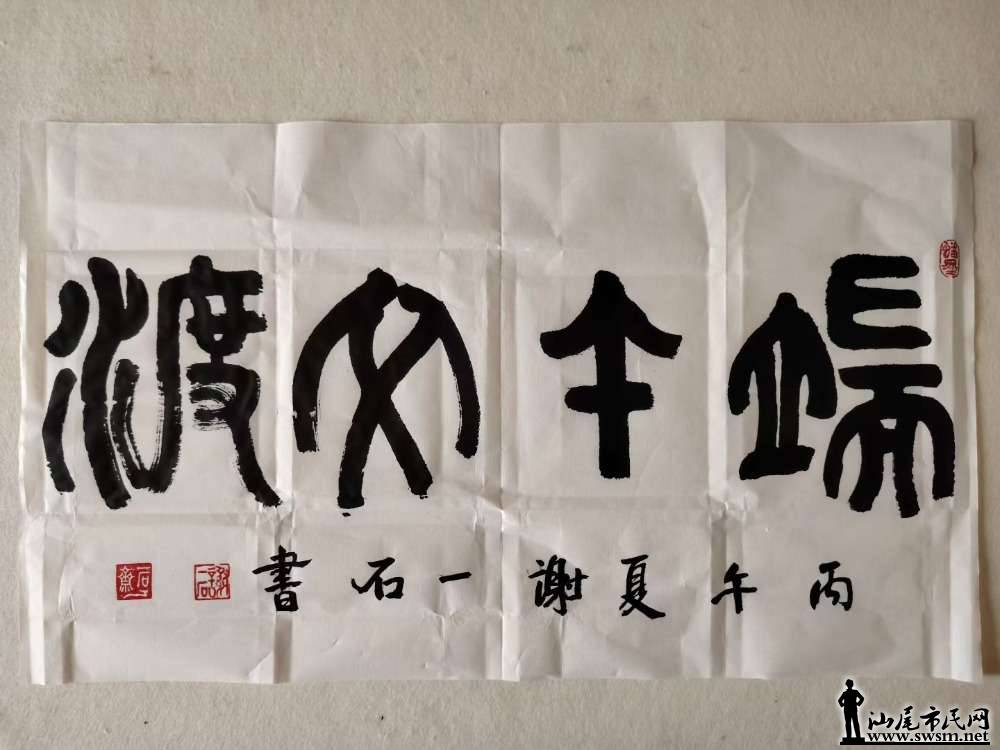 端午文渡
丙午夏謝一石書
汕尾市民网
www.swsm.net